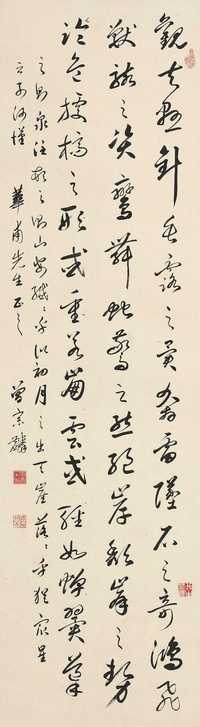 觀夫懸針垂露之異奔雷墜石之奇鴻飛
獸駭之資鸞舞蛇驚之態絕岸頹峯之勢
臨危據槁之形或重若崩雲或輕如蟬翼導
之則泉注頓之則山安纖纖乎似初月之出天崖落落乎猶眾星
之列河漢 華甫先生正之 曾宗鎔